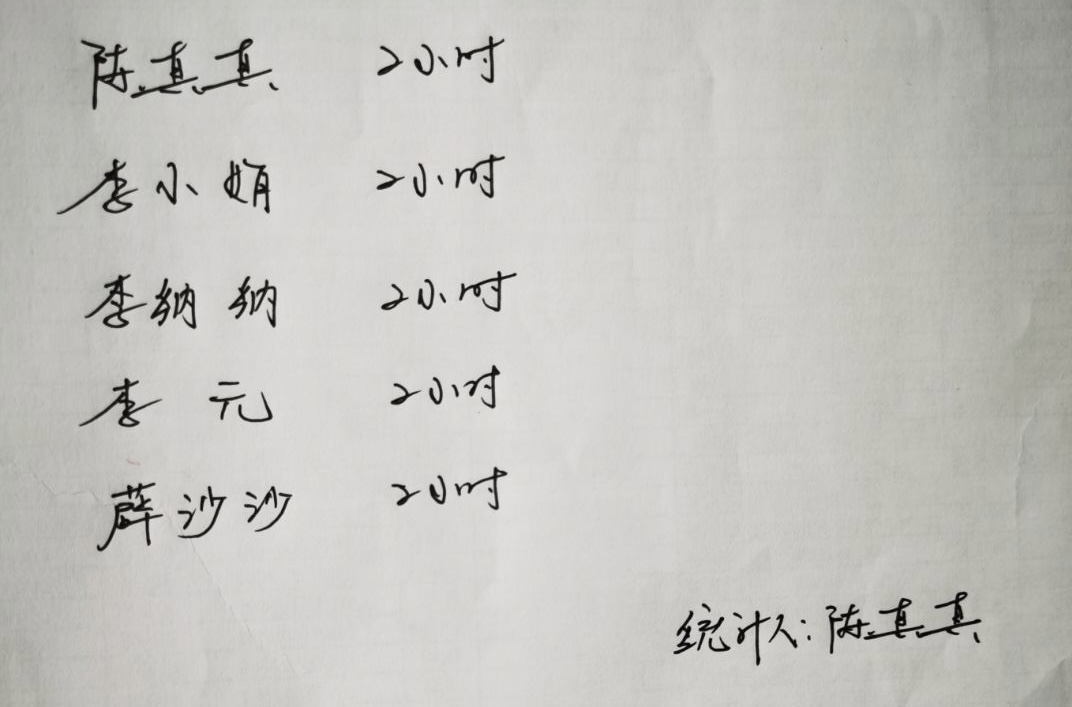 陈真真 2小时
李小娟 2小时
李纳纳 2小时
李元 2小时
薛沙沙 2小时
统计人:陈真真